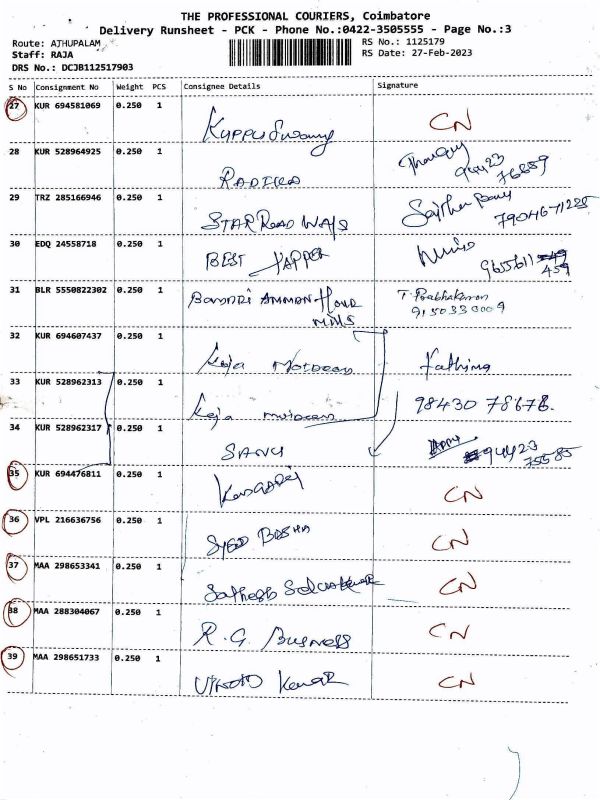 THE PROFESSIONAL COURIERS, Coimbatore
Delivery Runsheet - PCK - Phone No.:0422-3505555 - Page No.:3
Route: ATHUPALAM
RS No.: 1125179
Staff: RAJA
RS Date: 27-Feb-2023
DRS No.: DCJB112517903
S No Consignment No Weight PCS Consignee Details Signature
27 KUR 694581069 0.250 1 KUPPUSwamy CN
28 KUR 528964925 0.250 1 RADIKA 94423
76659
29 TRZ 285166946 0.250 1 STAR ROAD WAYS 7904671225
30 EDQ 24558718 0.250 1 BEST TAPPER 9655611
459
31 BLR 5550822302 0.250 1 BANNARI AMMAN FLOUR T. Prabhakaran
MILLS 9150330009
32 KUR 694607437 0.250 1 Kaja Moideen Fathima
33 KUR 528962313 0.250 1 Kaja moideen 98430 78678.
34 KUR 528962317 0.250 1 SANU 94423
75585
35 KUR 694476811 0.250 1 CN
36 VPL 216636756 0.250 1 SYED BASHA CN
37 MAA 298653341 0.250 1 Sathesh CN
38 MAA 288304067 0.250 1 R.G. Business CN
39 MAA 298651733 0.250 1 VINOTH Kumar CN